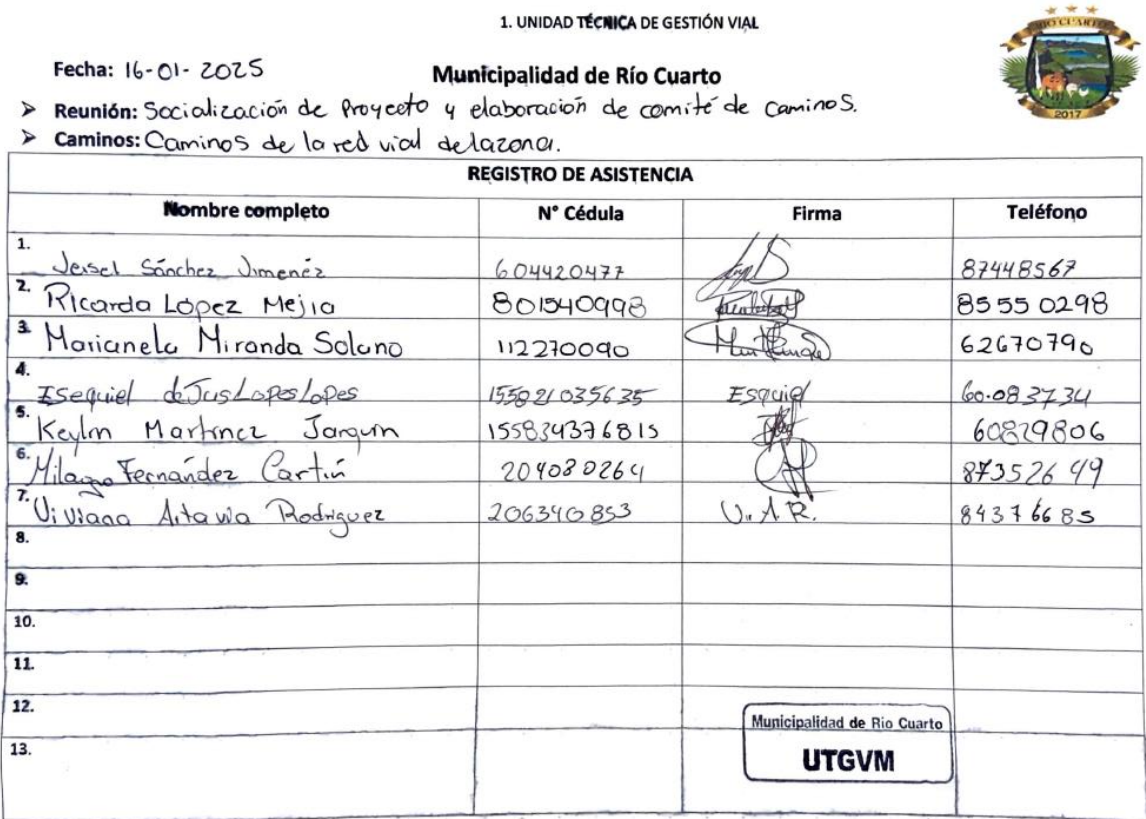 1. UNIDAD TÉCNICA DE GESTIÓN VIAL
RIO CUARTO
2017
Fecha: 16-01-2025
Municipalidad de Río Cuarto
➤ Reunión: Socialización de Proyecto y elaboración de comité de caminos.
➤ Caminos: Caminos de la red vial de la zona.
REGISTRO DE ASISTENCIA
Nombre completo N° Cédula Firma Teléfono
1. Jeisel Sánchez Jimenéz 604420477 87448567
2. Ricarda López Mejia 801540998 85550298
3. Marianela Miranda Solano 112270090 62670790
4. Esequiel de Jus Lopes Lopes 155821035635 Esquiel 60.083734
5. Keylin Martinez Jarquin 155834376815 60829806
6. Milagro Fernández Cartín 204080264 87352649
7. Viviana Artavia Rodriguez 206340853 V.A.R. 84376685
8.
9.
10.
11.
12.
13.
Municipalidad de Rio Cuarto
UTGVM